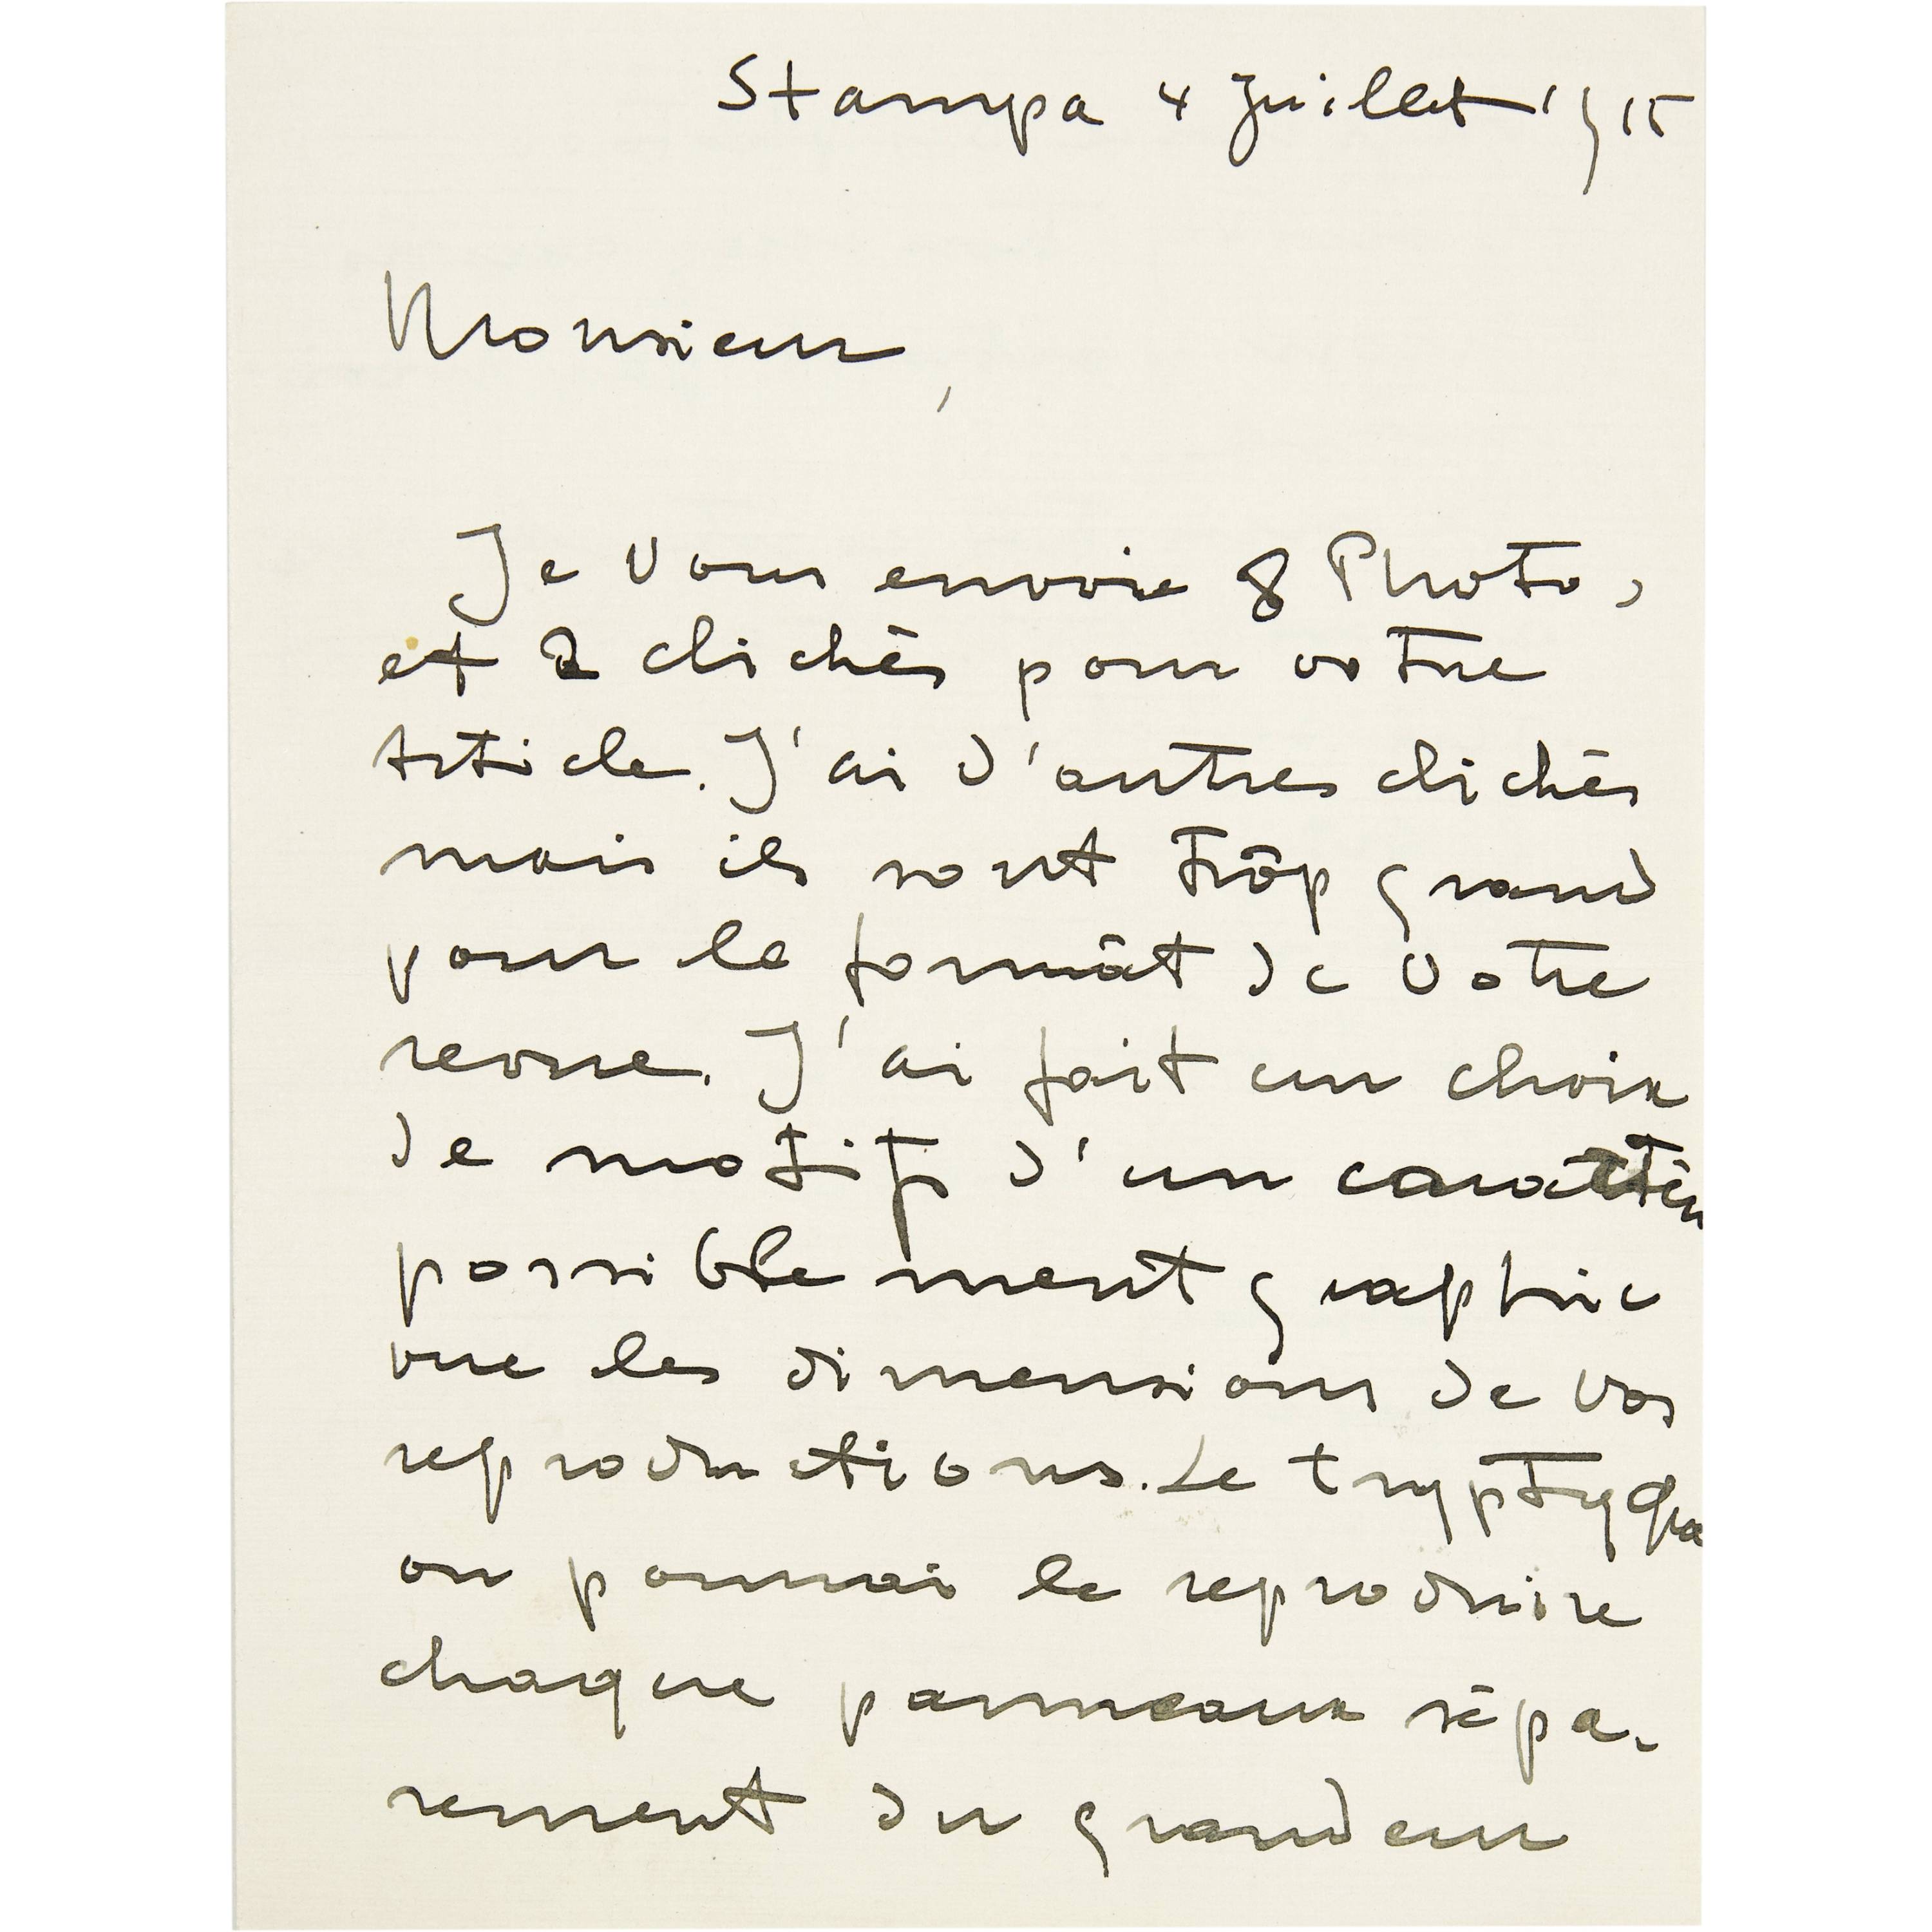 Stampa 4 Juillet 1915
Monsieur,
Je Vous envoie 8 Photos,
et 2 clichés pour votre
Article. J'ai d'autres clichés
mais ils sont trôp grand
pour le formât de Votre
revue. J'ai fait un choix
de motifs d'un caractèr
possiblement graphic
vue les dimensions de vos
reproductions. Le tryptyque
on pourrai le reproduire
chaque panneaux sépa-
rement du grandeur